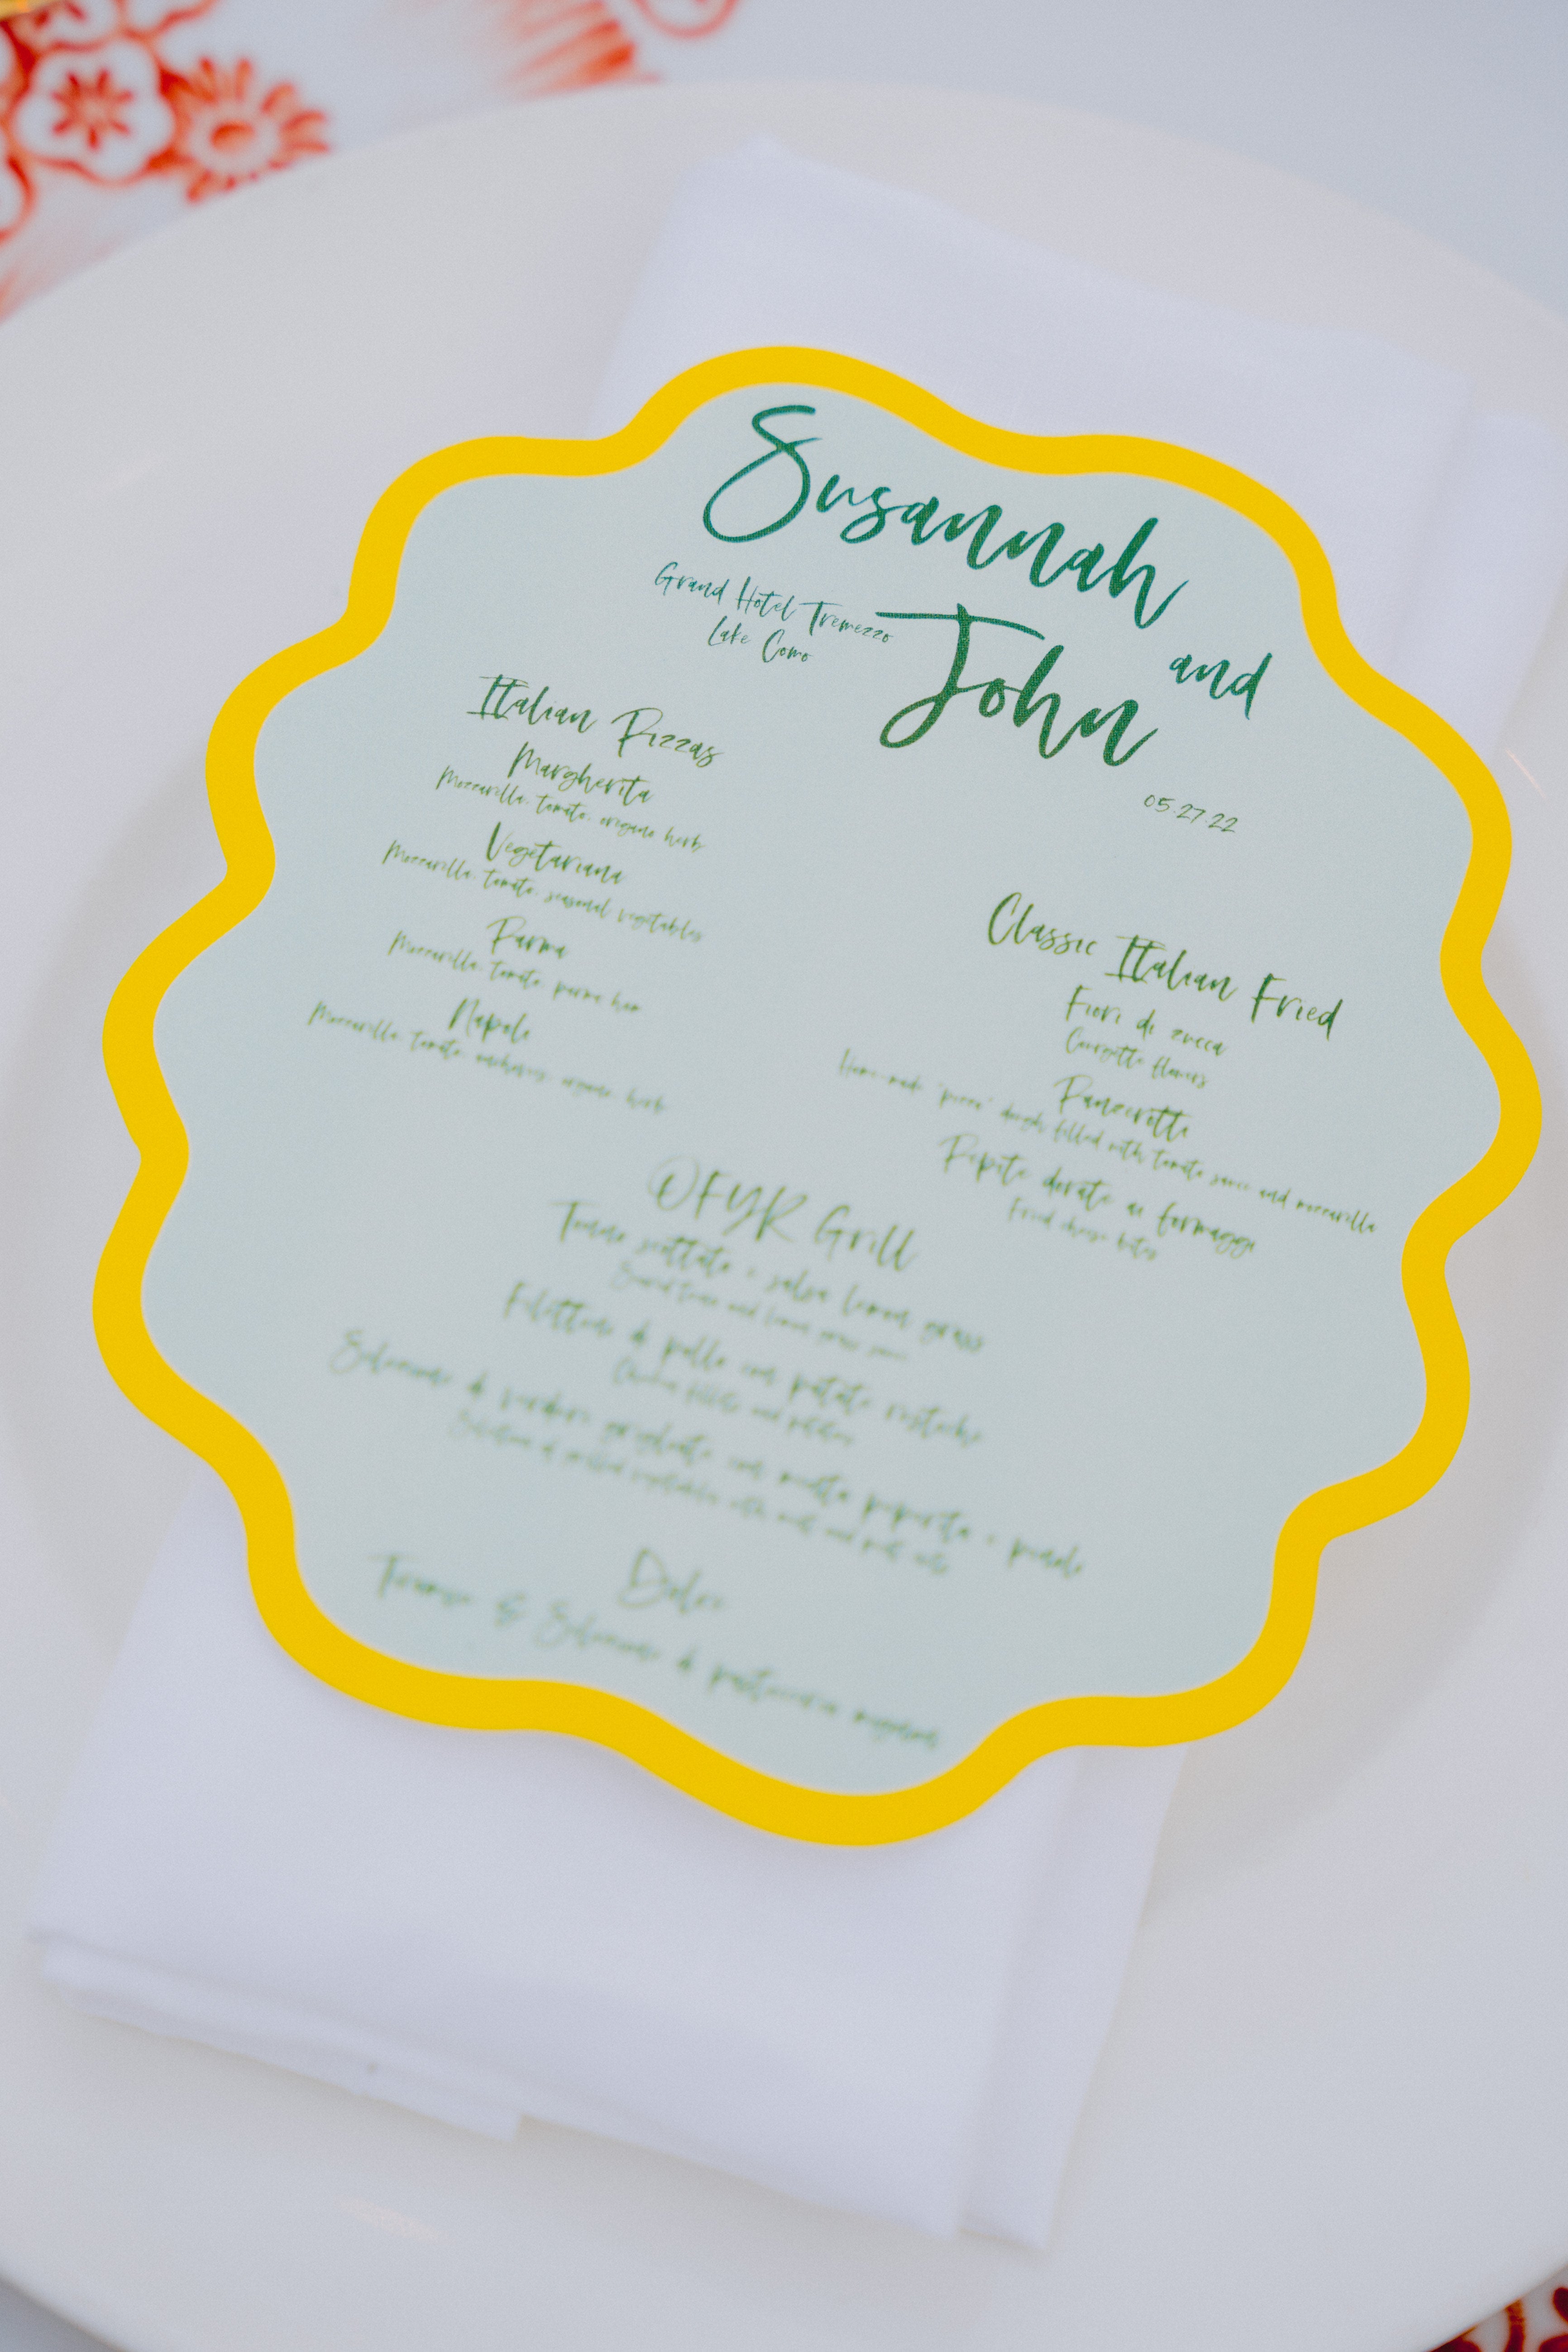 Susannah
and
John
Grand Hotel Tremezzo
Lake Como
05.27.22
Italian Pizzas
Margherita
Mozzarella, tomato, origano herb
Vegetariana
Mozzarella, tomato, seasonal vegetables
Parma
Mozzarella, tomato, parma ham
Napole
Mozzarella, tomato, anchovies, organo, herb
Classic Italian Fried
Fiori di zucca
Courgette flowers
Panzerotti
Home-made "pizza" dough filled with tomato sauce and mozzarella
Pepite dorate ai formaggi
Fried cheese bites
OFYR Grill
Tonno scottato e salsa lemon grass
Seared tuna and lemon grass
di pollo con patate rustiche
Chicken fillets and potatoes
Selezione di verdure grigliate con menta e pinole
Selection of grilled vegetables with and
Dolci
Tiramisu & Selezione di pasticceria mignon